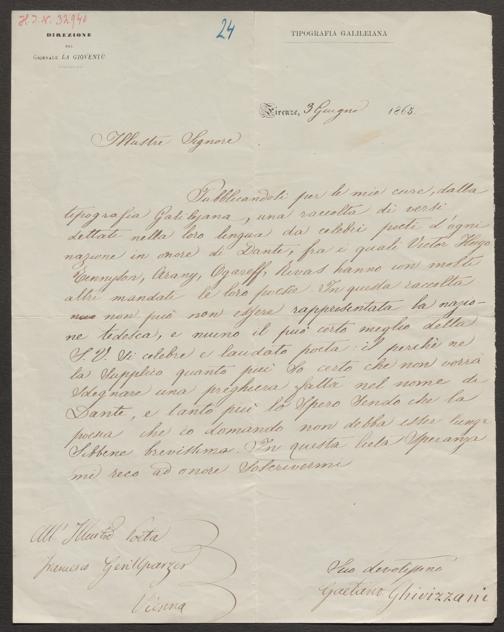 H.I.N. 32940
24
DIREZIONE
DEL
GIORNALE LA GIOVENTÙ
TIPOGRAFIA GALILEIANA
Firenze, 3 Giugno 1865
Illustre Signore
Pubblicandosi per le mie cure, dalla
tipografia Galilejana, una raccolta di versi
dettati nella loro lingua da celebri poeti d'ogni
nazione in onore di Dante, fra i quali Victor Hugo
Tennyson, Arany, Ogareff, Rivas hanno con molti
altri mandate le loro poesie. In questa raccolta
non può non essere rappresentata la nazio-
ne tedesca, e niuno il può certo meglio della
S. V. sì celebre e laudato poeta: il perchè ne
la supplico quanto più so certo che non vorrà
sdegnare una preghiera fatta nel nome di
Dante, e tanto più lo spero sendo che la
poesia che io domando non debba esser lunga
sibbene brevissima. In questa lieta speranza
mi reco ad onore soscrivermi
All' Illustre Poeta
Francesco Grillparzer
Vienna
Suo devotissimo
Gaetano Ghivizzani